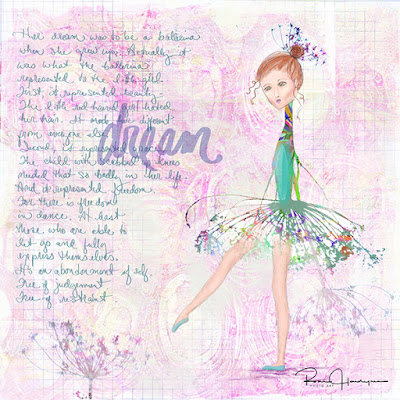 Her dream was to be a ballerina
when she grew up. Actually, it
was what the ballerina
represented to the little girl.
First, it represented beauty.
The little red haired girl hated
her hair. It made her different
from everyone else.
dream
Second, it represented
The child with scabbed knees
needed that so badly in her life.
And it represented freedom.
For there is freedom
in dance. At least
those who are able to
let go and fully
express themselves.
It's an abandonment of self.
Free of judgement
Free of restraint